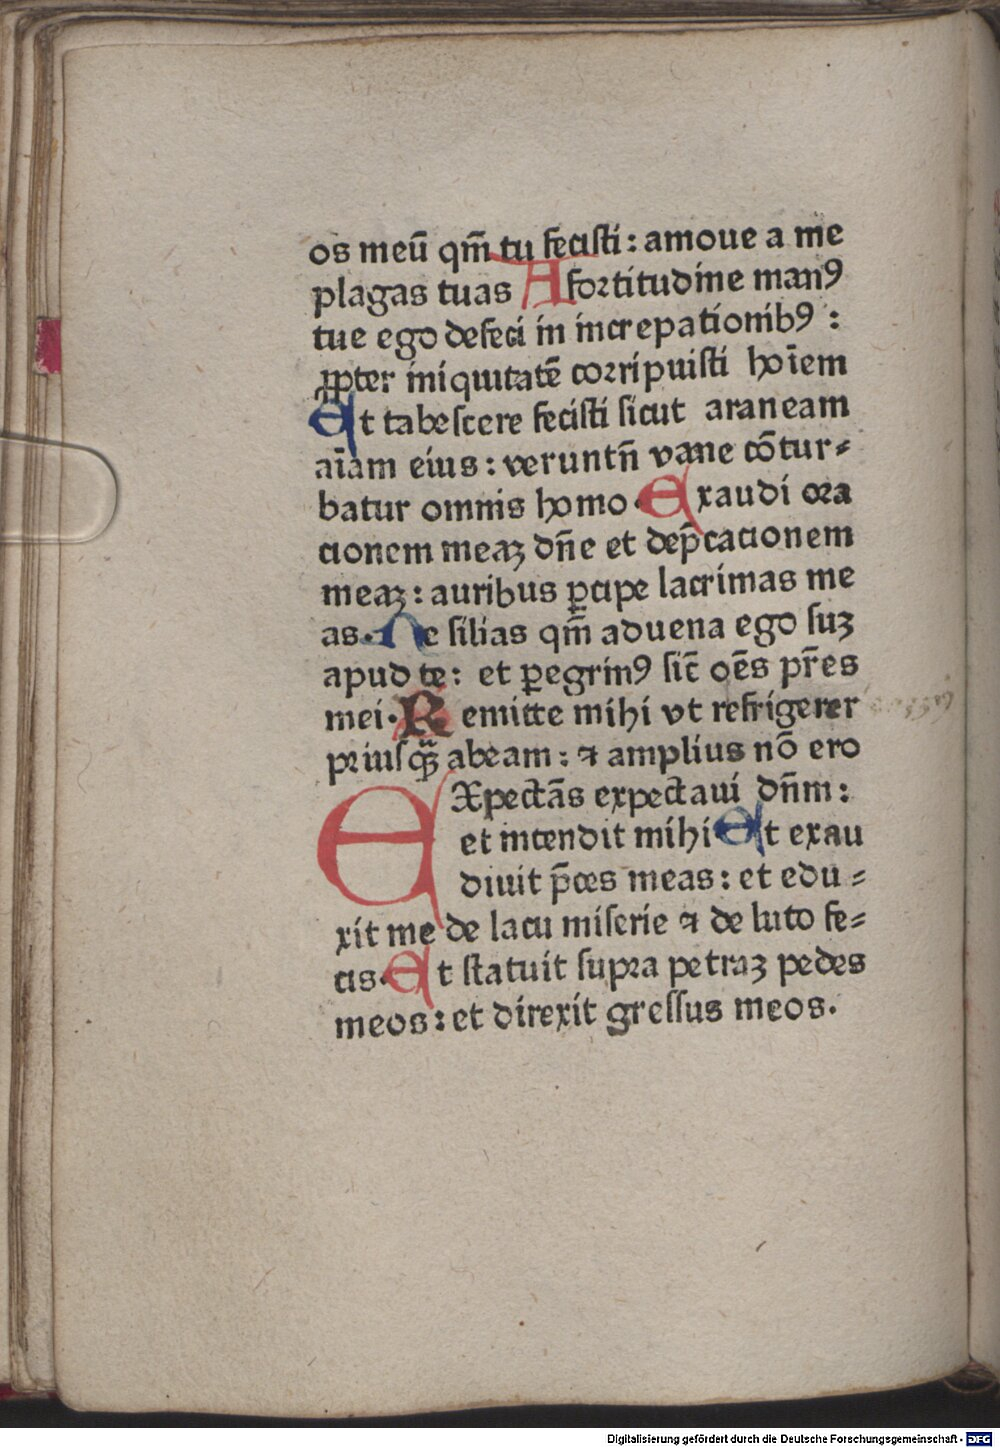 os meū qm̄ tu fecisti : amoue a me
plagas tuas A fortitudine manꝰ
tue ego defeci in increpationibꝰ :
ꝓpter iniquitatē corripuisti hoīem
Et tabescere fecisti sicut araneam
aīam eius : veruntn̄ vane cōtur⸗
batur omnis homo. Exaudi ora
cionem meaꝫ dn̄e et dep̄cacionem
meaꝫ : auribus ꝑcipe lacrimas me
as. Ne silias qm̄ aduena ego suꝫ
apud te : et ꝑegrinꝰ sic̄ oēs pr̄es
mei. Remitte mihi vt refrigerer
priusqꝫ̄ abeam : ⁊ amplius nō ero
EXpectās expectaui dn̄m :
et intendit mihi Et exau
diuit p̄ces meas : et edu⸗
xit me de lacu miserie ⁊ de luto fe⸗
cis. Et statuit supra petraꝫ pedes
meos : et direxit gressus meos.
Digitalisierung gefördert durch die Deutsche Forschungsgemeinschaft - DFG